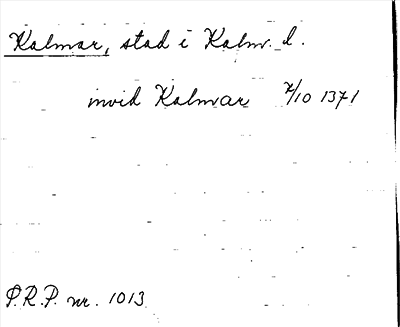 Kalmar, stad i Kalm. l.
invid Kalmar 7/10 1371
P.R.P. nr. 1013